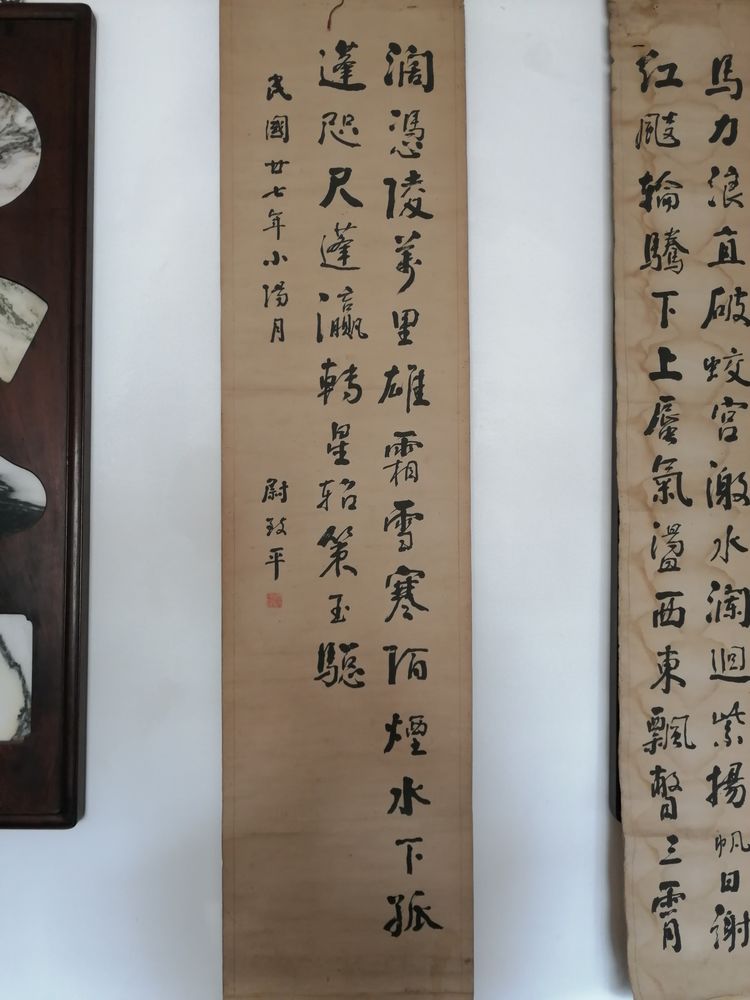 馬力浪直破蛟宮激水瀾迴紫揚帆日謝
紅颷輪騰下上蜃氣盪西東飄瞥三霄
濶憑陵萬里雄霜雪寒陌煙水下孤
蓬咫尺蓬瀛轉星軺策玉驄
民國廿七年小陽月 尉致平